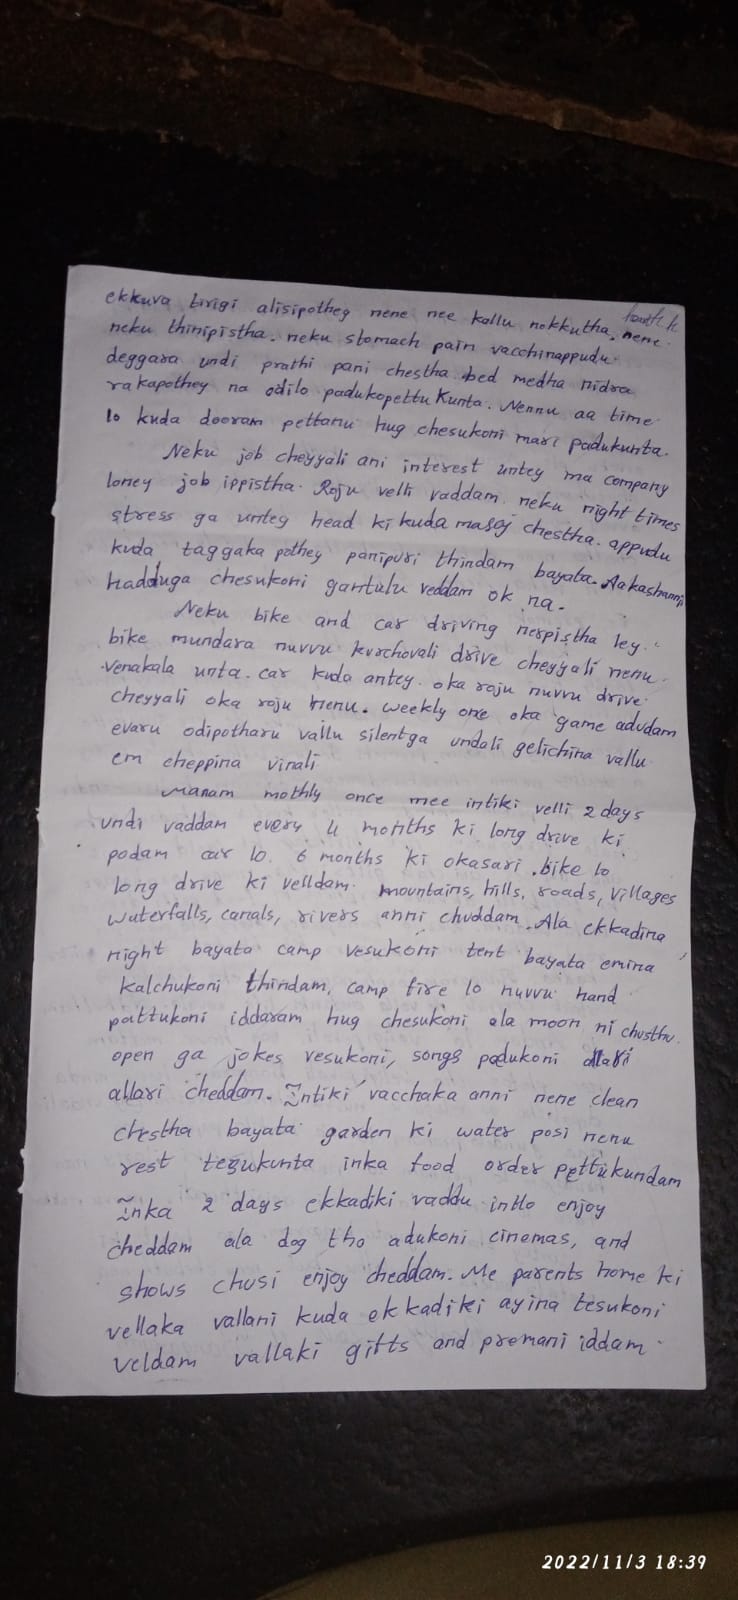 ekkuva tirigi alisipothey nene nee kallu nokkutha, nene
neku thinipistha. neku stomach pain vacchinappudu
deggara undi prathi pani chestha bed medha nidra
rakapothey na odilo padukopettu kunta. Nennu aa time
lo kuda dooram pettanu hug chesukoni mari padukunta.
Neku job cheyyali ani interest untey ma company
loney job ippistha. Roju velli vaddam neku night times
stress ga untey head ki kuda masaj chestha. appudu
kuda taggaka pothey panipuri thindam bayata. Aakashanni
hadduga chesukoni gantulu veddam ok na.
Neku bike and car driving nerpistha ley.
bike mundara nuvvu kurchovali drive cheyyali nenu
venakala unta. car kuda antey. oka roju nuvvu drive
cheyyali oka roju nenu. weekly one oka game adudam
evaru odipotharu vallu silentga undali gelichina vallu
em cheppina vinali
Manam mothly once mee intiki velli 2 days
undi vaddam every 4 months ki long drive ki
podam car lo. 6 months ki okasari .bike lo
long drive ki velldam. mountains, hills, roads, villages
waterfalls, canals, rivers anni chuddam. Ala ekkadina
night bayata camp vesukoni tent bayata emina
kalchukoni thindam, camp fire lo nuvvu hand
pattukoni iddaram hug chesukoni ala moon ni chusthu.
open ga jokes vesukoni, songs padukoni allari
allari cheddam. Intiki vacchaka anni nene clean
chestha bayata garden ki water posi nenu
rest tesukunta inka food order pettukundam
Inka 2 days ekkadiki vaddu intlo enjoy
cheddam ala dog tho adukoni cinemas, and
shows chusi enjoy cheddam. Me parents home ki
vellaka vallani kuda ekkadiki ayina tesukoni
veldam vallaki gifts and premani iddam.
2022/11/3 18:39